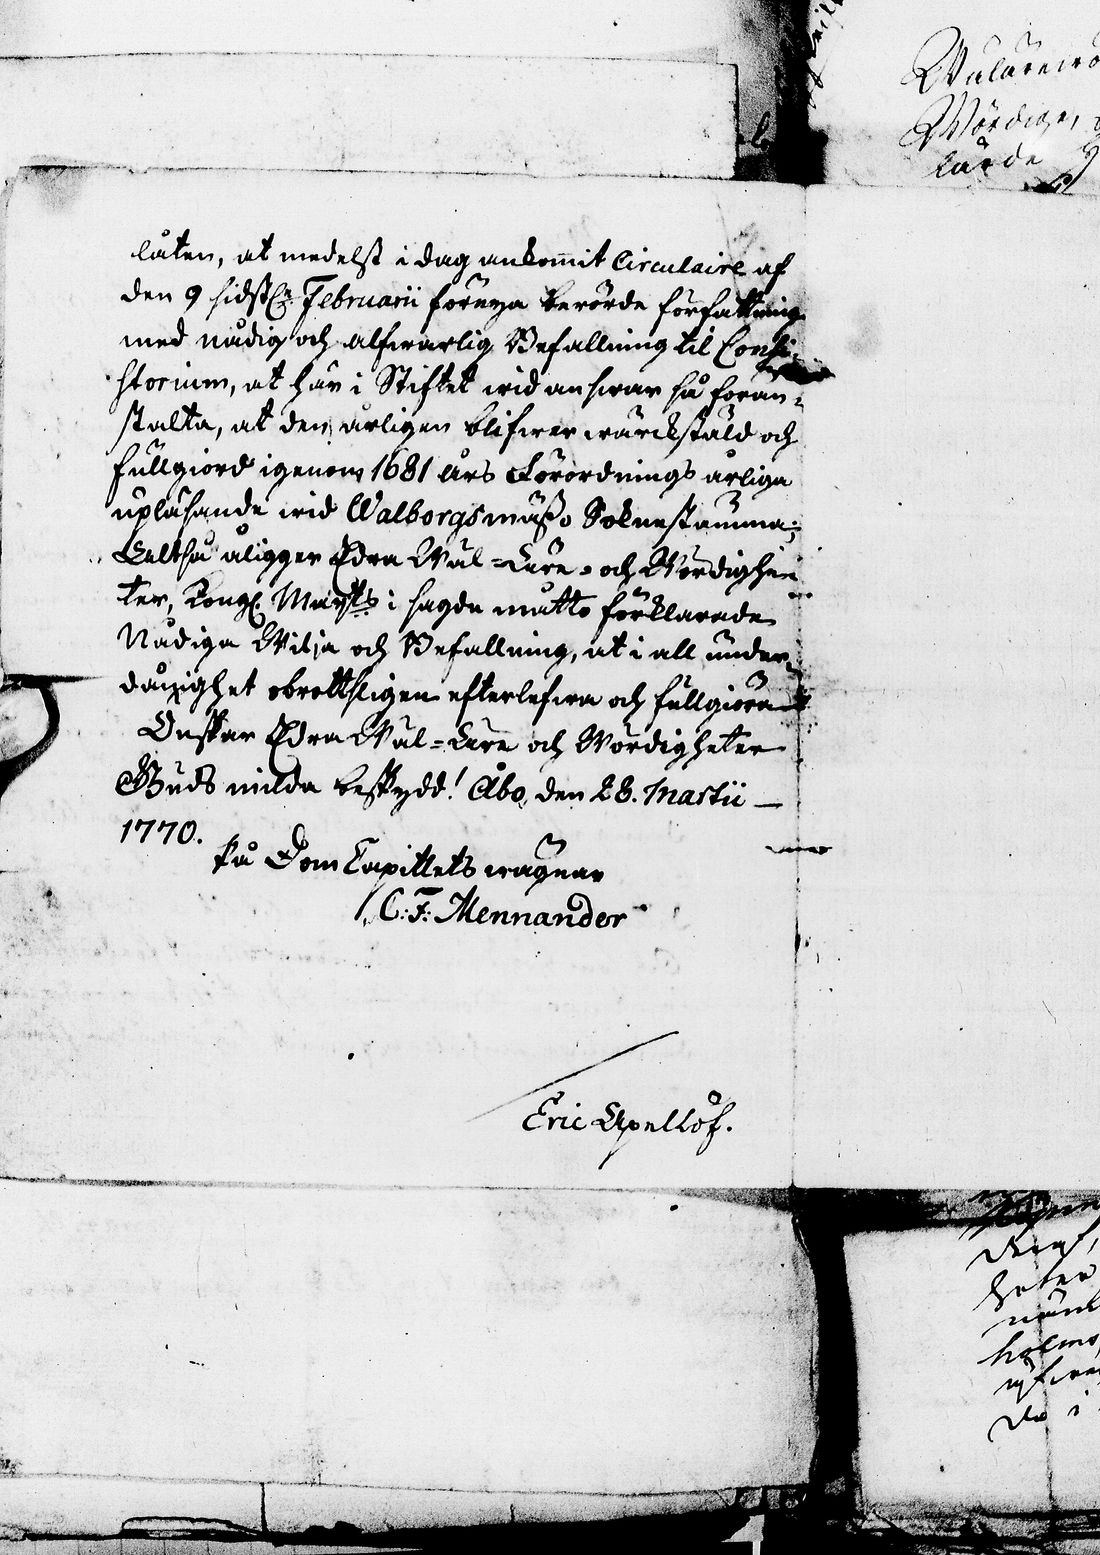 låten, at medelst i dag ankommit Circulaire af
den 9 sidstl:ne Februarii förnya berörde författning
med nådig och alfwarlig Befallning til Consi-
storium, at här i Stiftet wid answar så foran-
stalta, at den årligen blifwer wärckstäld och
fullgiord igenom 1681 års Förordnings årliga
upläsande wid Walborgsmässo Soknestämma;
Altså åligger Edra Wäl-Ehre- och Wördighe-
ter, Kongl. Maj:ts i sagde måtto förklarade
Nådiga Wilja och Befallning, at i all under-
dånighet obrottsligen efterlefwa och fullgiöra
Önskar Edra Wäl-Ehre och Wördigheter
Guds milda beskydd! Åbo, den 28. Martii
1770.
På Dom Capitlets wägnar
C: F: Mennander
Eric Apellöf.
Wälärewö
Wördige,
lärde
heter
holms